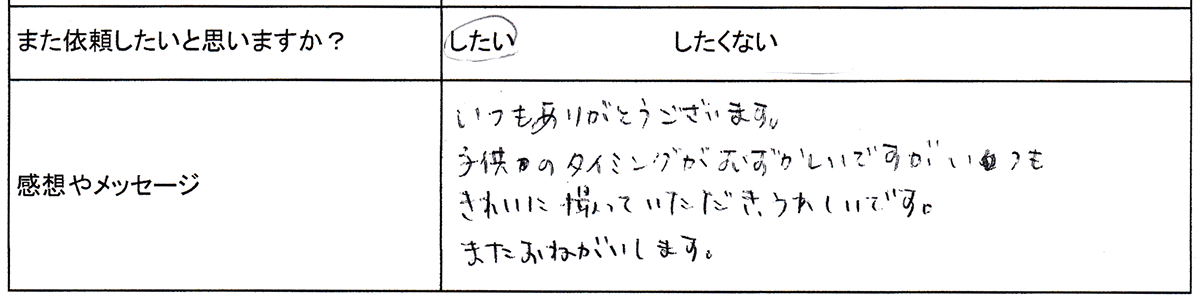 また依頼したいと思いますか？ したい したくない
感想やメッセージ
いつもありがとうございます。
子供のタイミングがむずかしいですがいつも
きれいに撮っていただき、うれしいです。
またおねがいします。